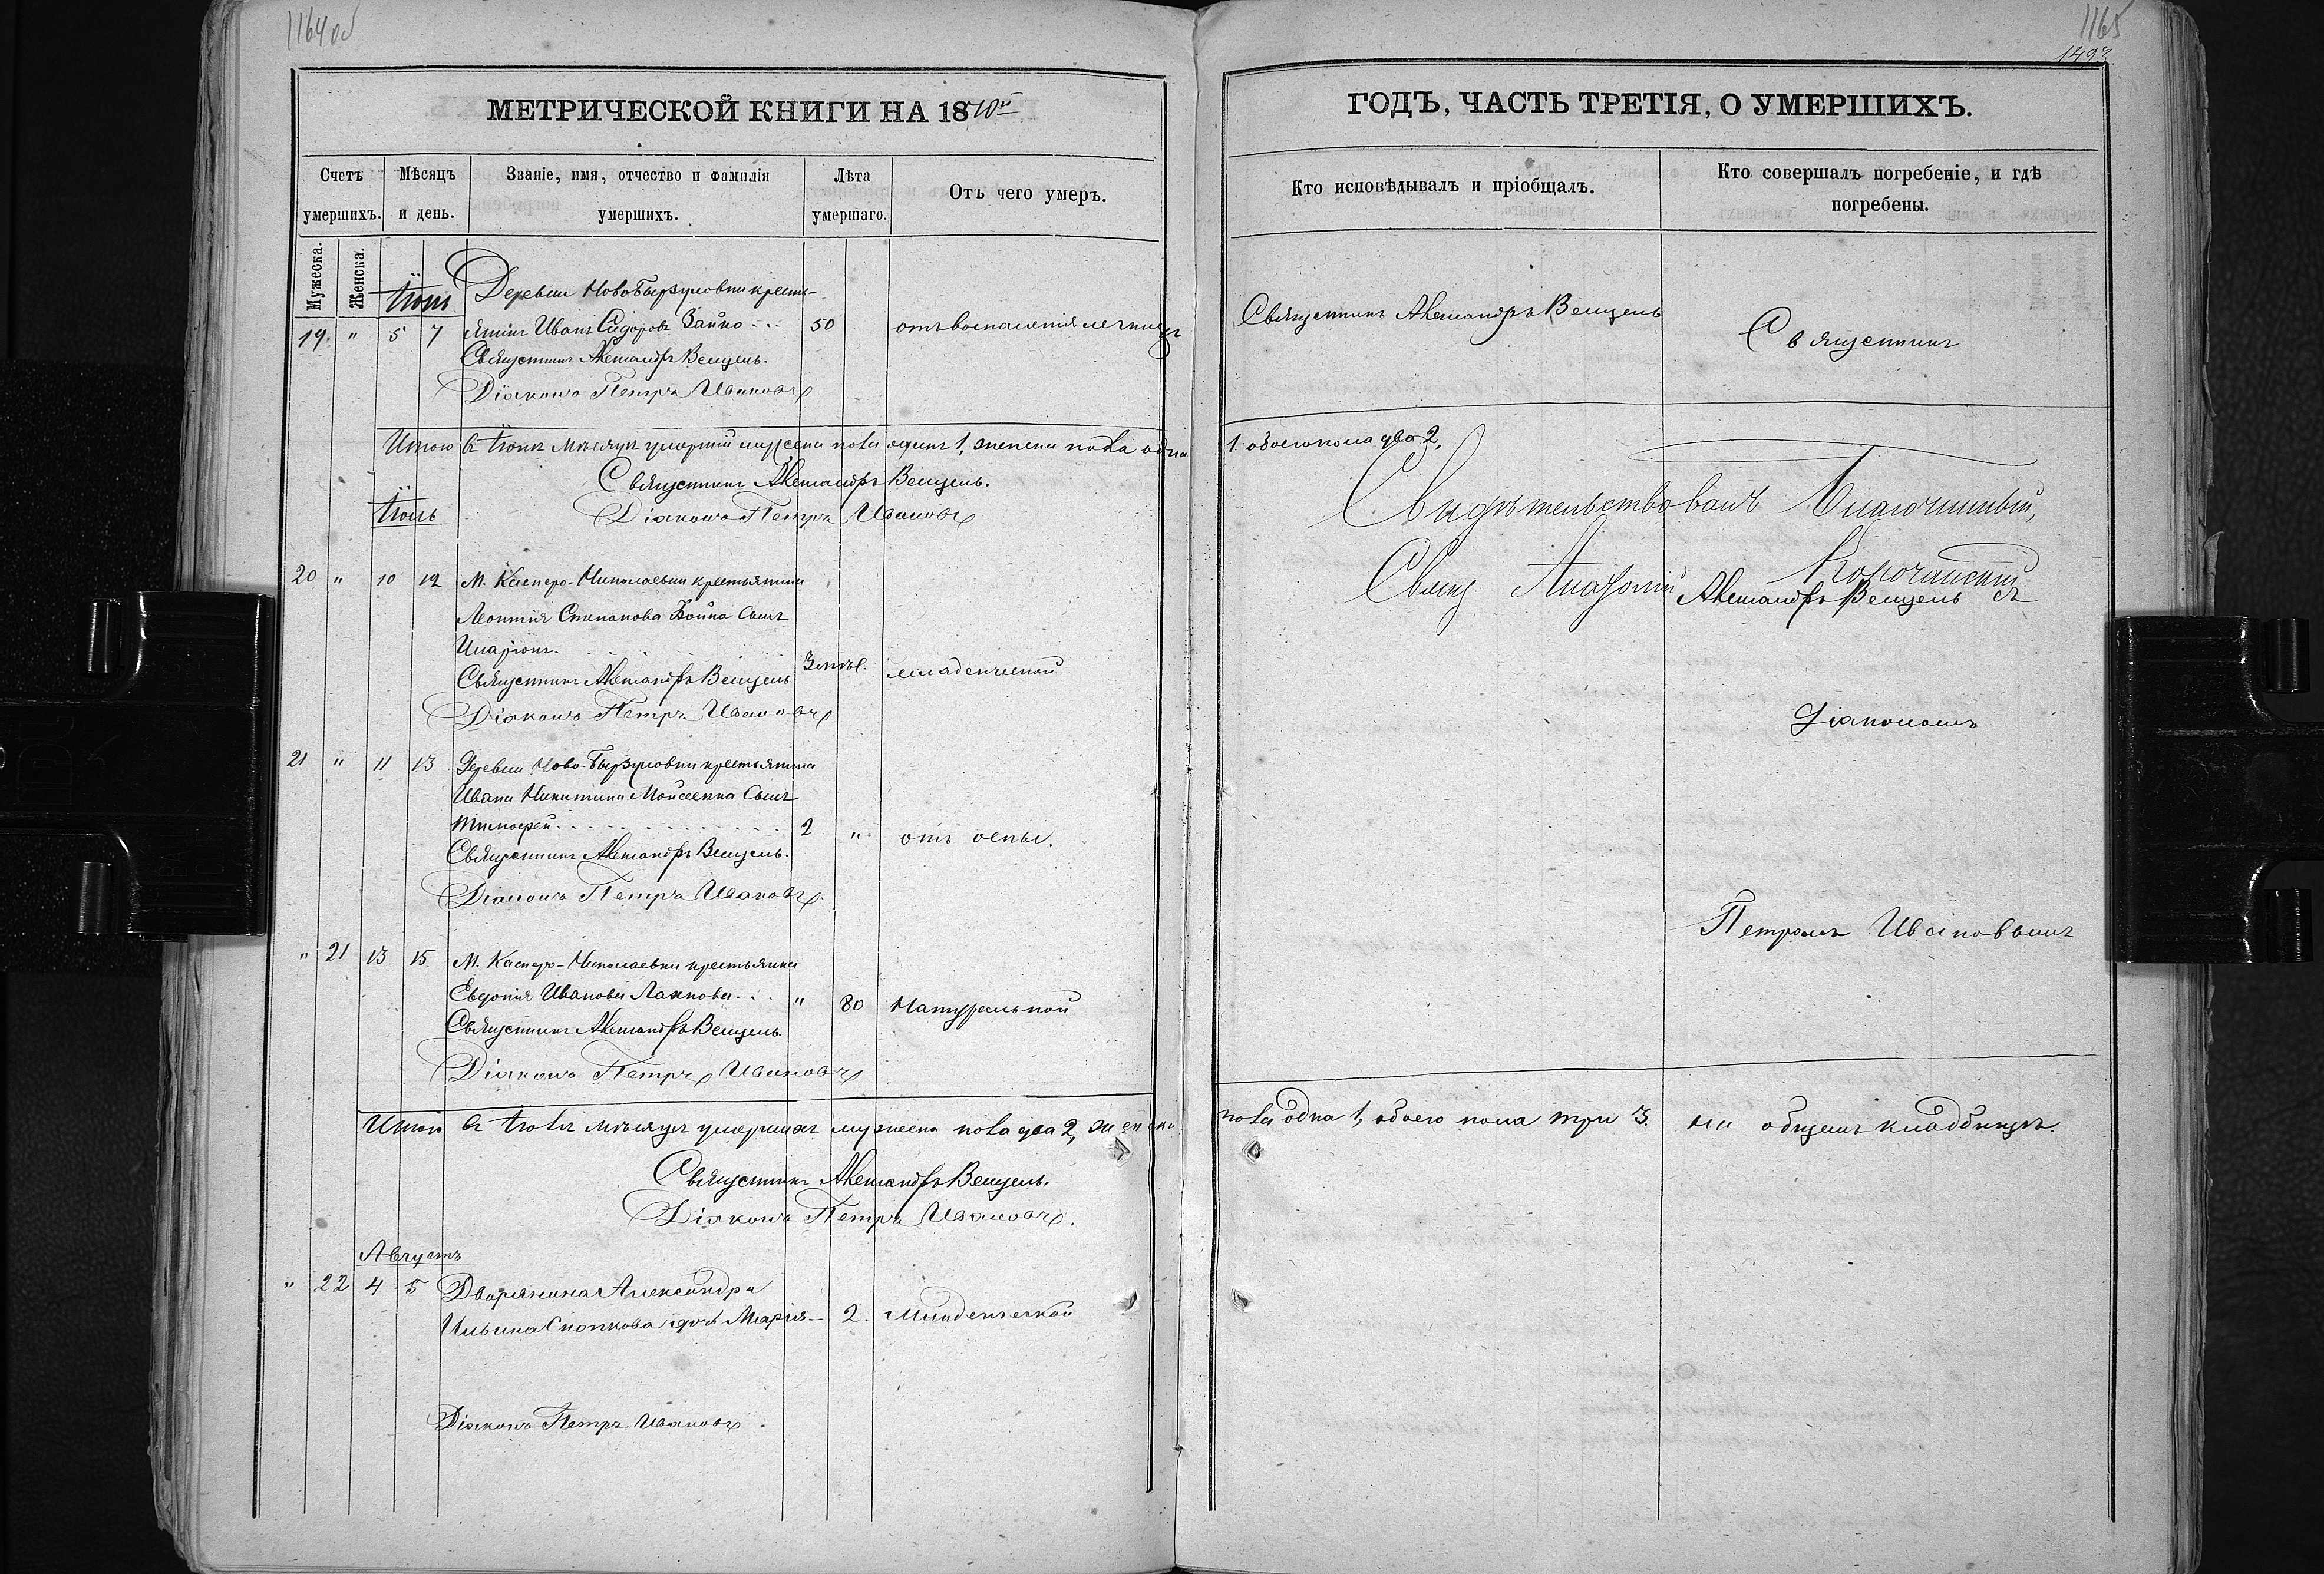 1164 об
МЕТРИЧЕСКОЙ КНИГИ НА 18
Счетъ умершихъ.
Мѣсяцъ и день.
Званіе, имя, отчество и фамилія умершихъ.
Лѣта умершаго.
Отъ чего умеръ.
Мужеска.
Женска.
Іюнь
Деревни Ново Бырзуловки кресть-
19. " 5 7 янинъ Иванъ Сидоровъ Зайко 50 отъ воспаленія легкихъ
Священникъ Александръ Венцель.
Діаконъ Петръ Ивановъ
Итого въ Іюнѣ мѣсяцѣ умершій мужеска пола одинъ 1, женска пола одна
Священникъ Александръ Венцель.
Діаконъ Петръ Ивановъ
Іюль
20 " 10 12 М. Касперо-Николаевки крестьянина
Леонтія Степанова Бойко сынъ
Иларіонъ.
Священникъ Александръ Венцель
3 младенческой
Діаконъ Петръ Ивановъ
21 " 11 13 Деревни Ново-Бырзуловки крестьянина
Ивана Никитина Мойсеенка сынъ
Тимоѳей. 2 " отъ оспы.
Священникъ Александръ Венцель.
Діаконъ Петръ Ивановъ.
" 21 13 15 М. Касперо-Николаевки крестьянка
Евдокія Иванова " 80 Натуральной
Священникъ Александръ Венцель.
Діаконъ Петръ Ивановъ
Итого въ Іюлѣ мѣсяцѣ умершихъ мужеска пола два 2, женска
Священникъ Александръ Венцель.
Діаконъ Петръ Ивановъ.
Августъ
" 22 4 5 Дворянина Александра
Ильина дочь Марія— 2. Младенческой
Діаконъ Петръ Ивановъ.
1165
1493
ГОДЪ, ЧАСТЬ ТРЕТІЯ, О УМЕРШИХЪ.
Кто исповѣдывалъ и пріобщалъ.
Кто совершалъ погребеніе, и гдѣ погребены.
Священникъ Александръ Венцель
Священникъ
1 обоего пола два 2.
Свидѣтельствовалъ Благочинный,
Свящ.
Александръ Венцель съ
Діакономъ
Петромъ Ивановымъ
пола одна 1, обоего пола три 3.
на общемъ кладбищѣ.